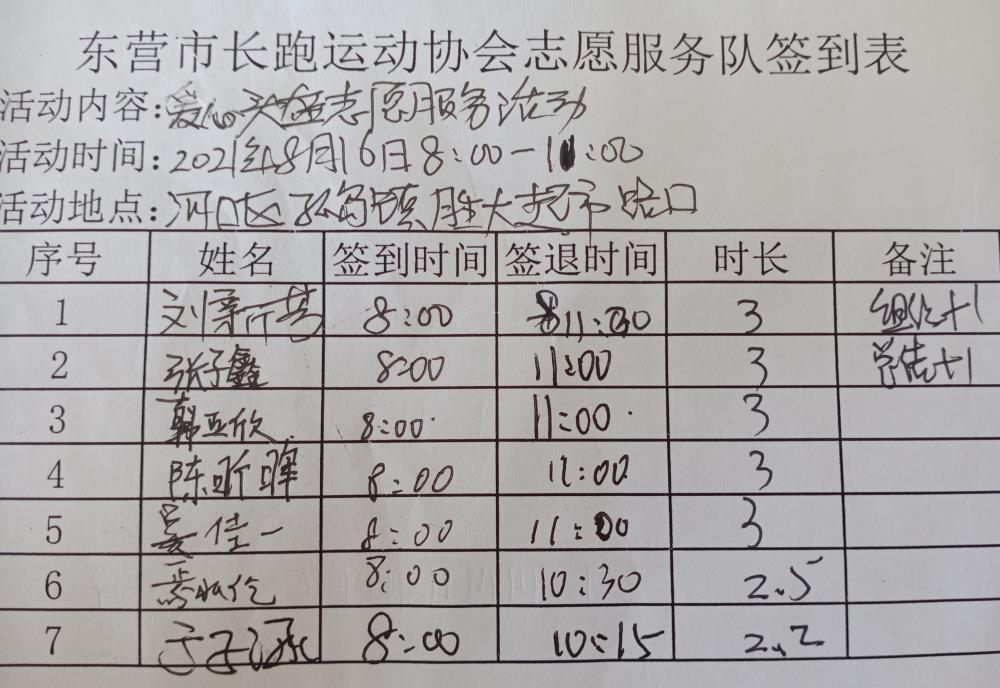 东营市长跑运动协会志愿服务队签到表
活动内容:爱心头盔志愿服务活动
活动时间:2021年8月16日8:00-11:00
活动地点:河口区孤岛镇胜大超市路口
序号 姓名 签到时间 签退时间 时长 备注
1 8:00 11:00 3 组织+1
2 张子鑫 8:00 11:00 3 总结+1
3 韩亚欣 8:00 11:00 3
4 陈昕晖 8:00 11:00 3
5 吴佳一 8:00 11:00 3
6 8:00 10:30 2.5
7 于子涵 8:00 10:15 2.2